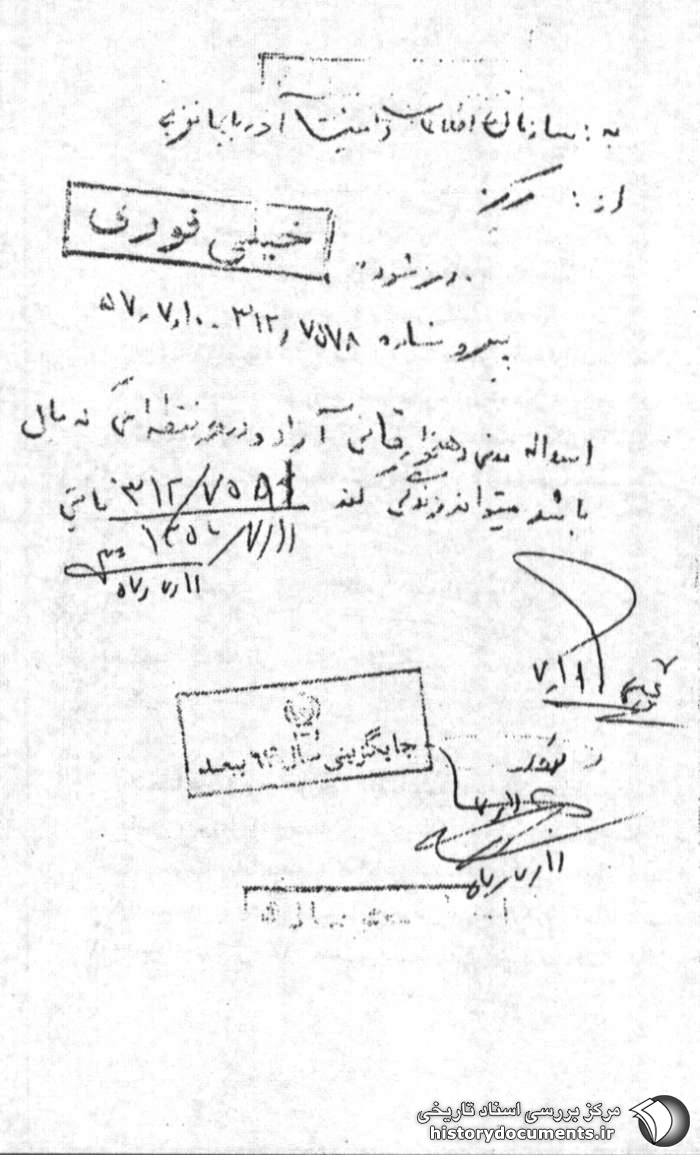 به: سازمان اطلاعات و امنیت آذربایجانغربی
از: مرکز
خیلی فوری
رمز شود.
پیرو شماره ۳۱۲/۷۵۷۸ - ۵۷/۷/۱۰
اسداله مدنی دهخوارقانی آزاد و در هر نقطه ای که مایل
باشد میتواند زندگی کند
۳۱۲/۷۵۸۹
۱۳۵۷/۷/۱۱
۵۷/۷/۱۱
۷/۱۱
جایگزینی سال ۶۴ ببعد
۷/۱۱
۵۷/۷/۱۱
مرکز بررسی اسناد تاریخی
historydocuments.ir